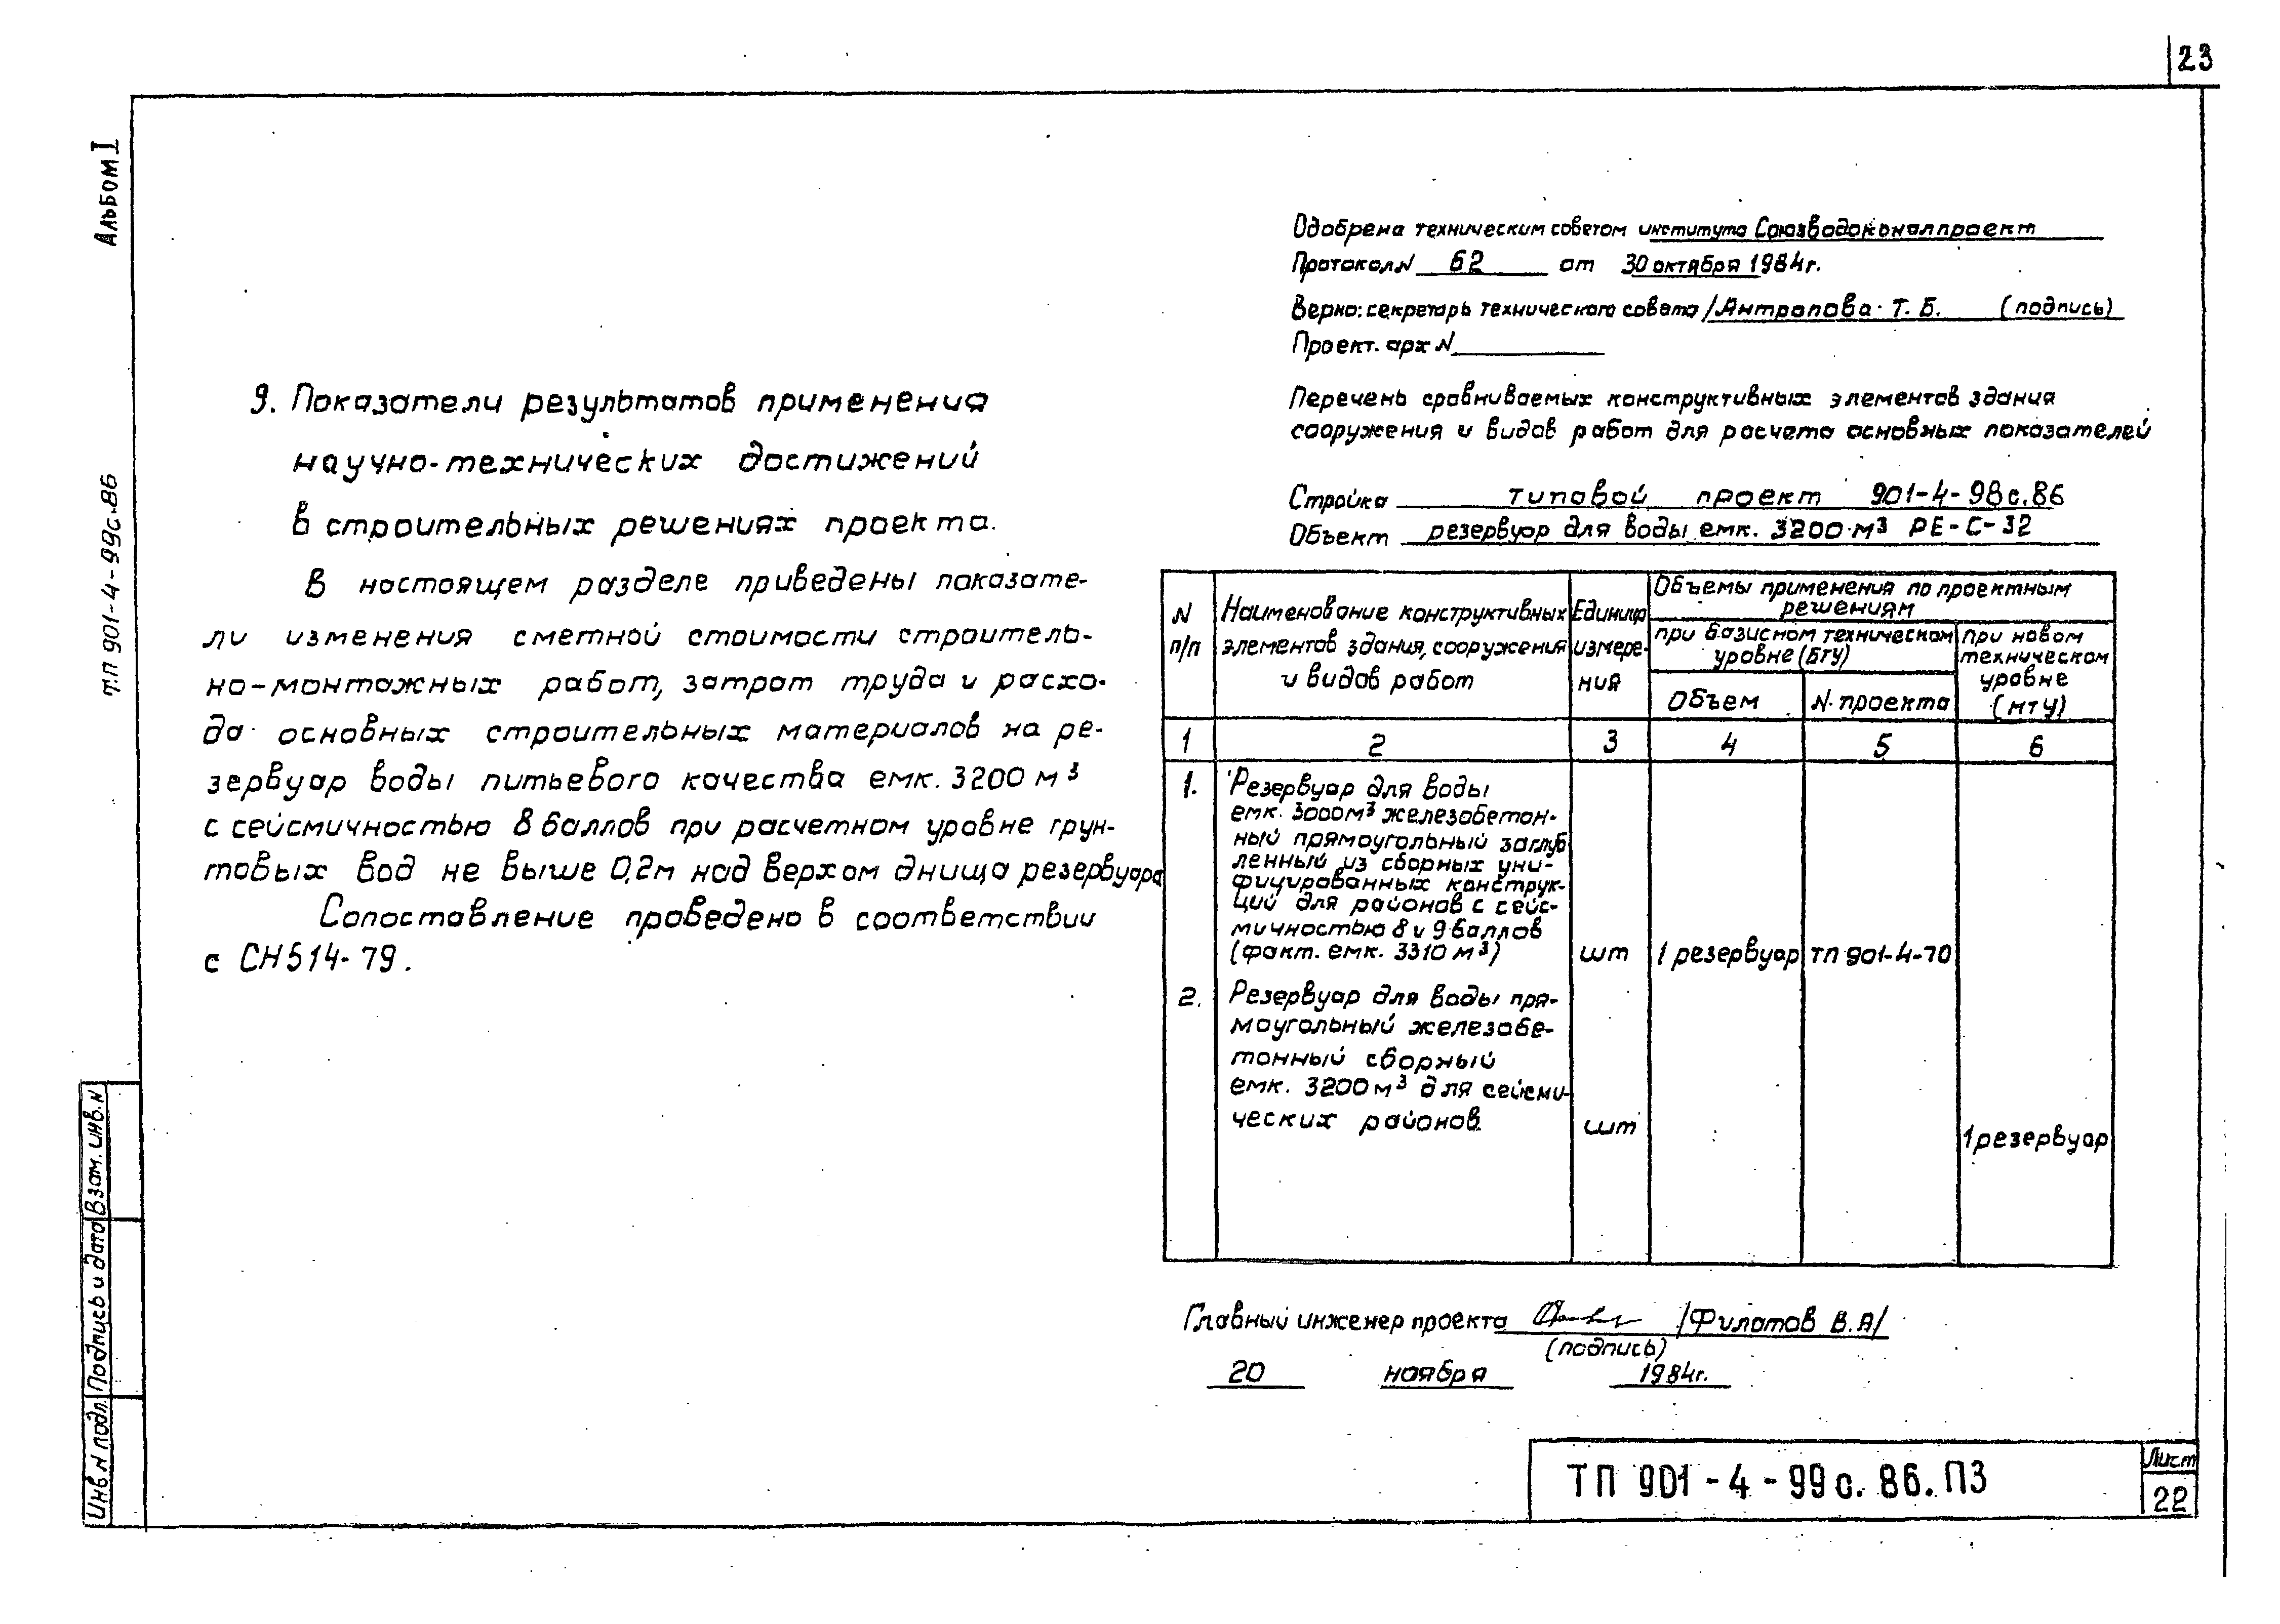 23
Альбом I
ТП 901-4-99с.86
9. Показатели результатов применения
научно-технических достижений
в строительных решениях проекта.
В настоящем разделе приведены показате-
ли изменения сметной стоимости строитель-
но-монтажных работ, затрат труда и расхо-
да основных строительных материалов на ре-
зервуар воды питьевого качества емк. 3200 м³
с сейсмичностью 8 баллов при расчетном уровне грун-
товых вод не выше 0,2м над верхом днища резервуара
Сопоставление проведено в соответствии
с СН514-79.
Одобрена техническим советом института Союзводоканалпроект
Протокол N 62 от 30 октября 1984г.
Верно: секретарь технического совета /Антропова Т. Б. (подпись)
Проект. арх N
Перечень сравниваемых конструктивных элементов здания
сооружения и видов работ для расчета основных показателей
Стройка типовой проект 901-4-98с.86
Объект резервуар для воды емк. 3200 м³ РЕ-С-32
N
п/п
Наименование конструктивных
элементов здания, сооружения
и видов работ
Единица
измере-
ния
Объемы применения по проектным
решениям
при базисном техническом
уровне (БТУ)
Объем
N проекта
при новом
техническом
уровне
(НТУ)
1 2 3 4 5 6
1. Резервуар для воды
емк. 3000м³ железобетон-
ный прямоугольный заглуб
ленный из сборных уни-
фицированных конструк-
ций для районов с сейс-
мичностью 8 и 9 баллов
(факт. емк. 3310 м³) шт 1 резервуар ТП 901-4-70
2. Резервуар для воды пря-
моугольный железобе-
тонный сборный
емк. 3200м³ для сейсми-
ческих районов. шт 1 резервуар
Главный инженер проекта /Филатов В.А/
(подпись)
20 ноября 1984г.
Инв N подл. Подпись и дата Взам. инв. N
ТП 901-4-99с.86.ПЗ
Лист
22